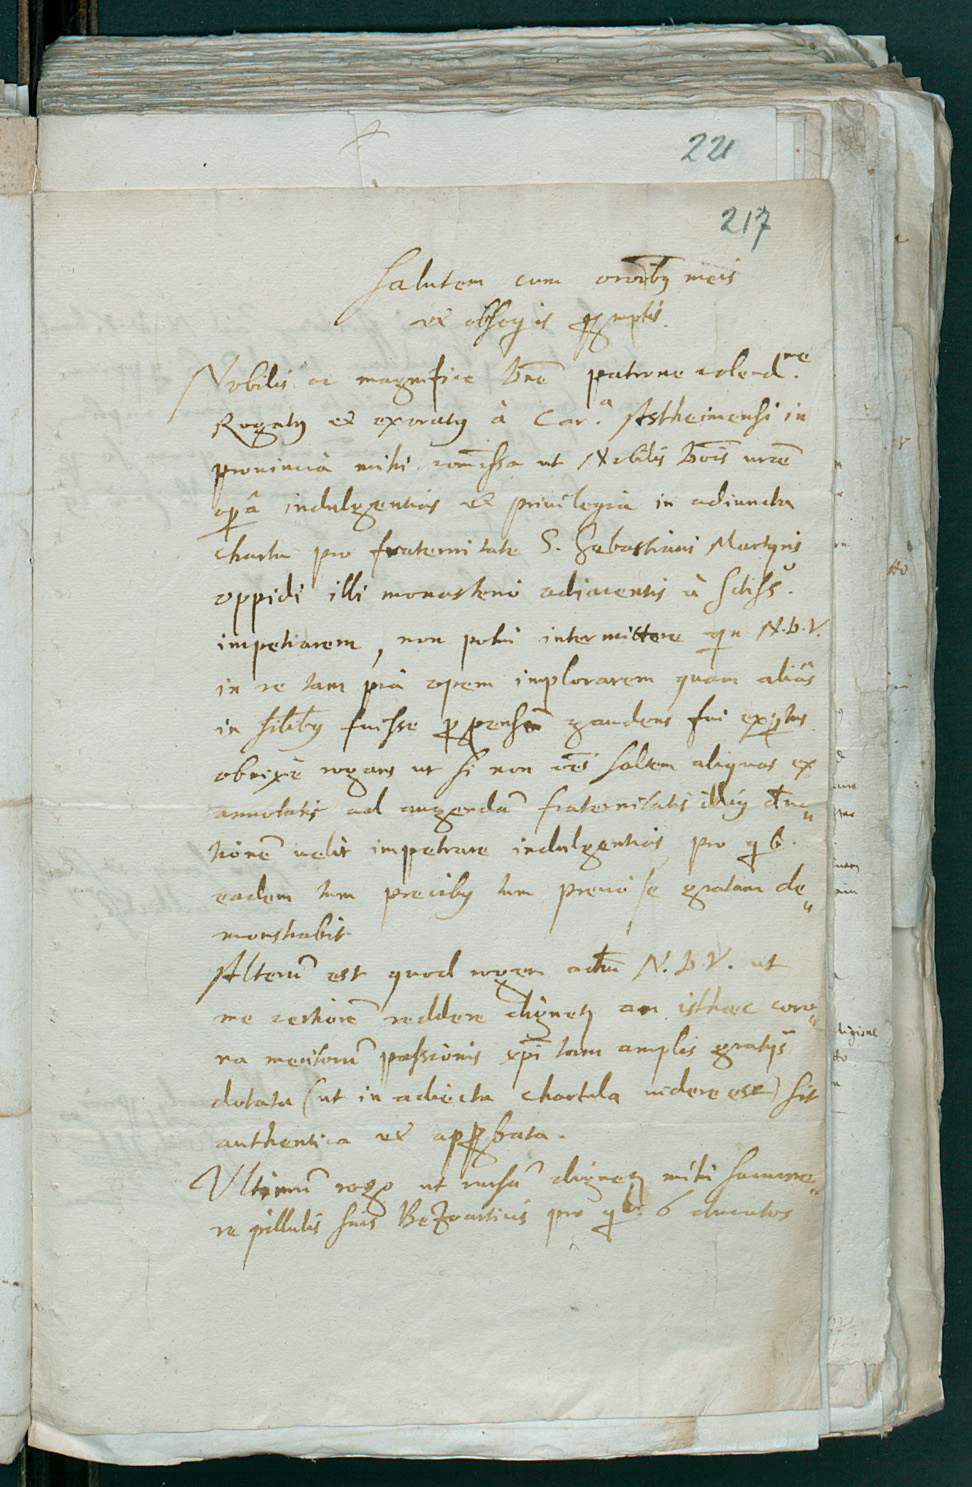 221
217
Salutem cum oroībq meis
et obseqijs ꝓmptis.
Nobilis ac magnifice Dn̄e patrone colend.ne
Rogatq et exoratq à Car.a Astheimensi in
prouincia mihi com̄issa ut Nobilis Dōis urāe
oꝑâ indulgentias et priuilegia in adiuncta
charta pro fraternitate S. Sebastiani Martyris
oppidi illi monasterio adiacentis à Sctiss.o
impetrarem, non potui intermittere qn N.D.V.
in re tam pia opem implorarem quam aliâs
in silibq fuisse ꝓpensam gaudens fui exꝑtus
obnixè rogans ut si non oēs saltem aliquas ex
annotatis ad augendā fraternitatis illiq deuo„
tionē uelit impetrare indulgentias pro qb.
eadem tum precibq tum precio se gratam de„
monstrabit.
Alterū est quod rogem N.D.V. ut
me certiorē reddere dignetʒ an isthaec coro„
na meritorū passionis xp̄i tam amplis gratijs
dotata (ut in adiecta chartula uidere est) sit
authentica et apꝓbata.
Ultimū rogo ut rursū dignetʒ mihi succurre„
re pillulis suis Bezoarticis pro qb. 6 ducatos